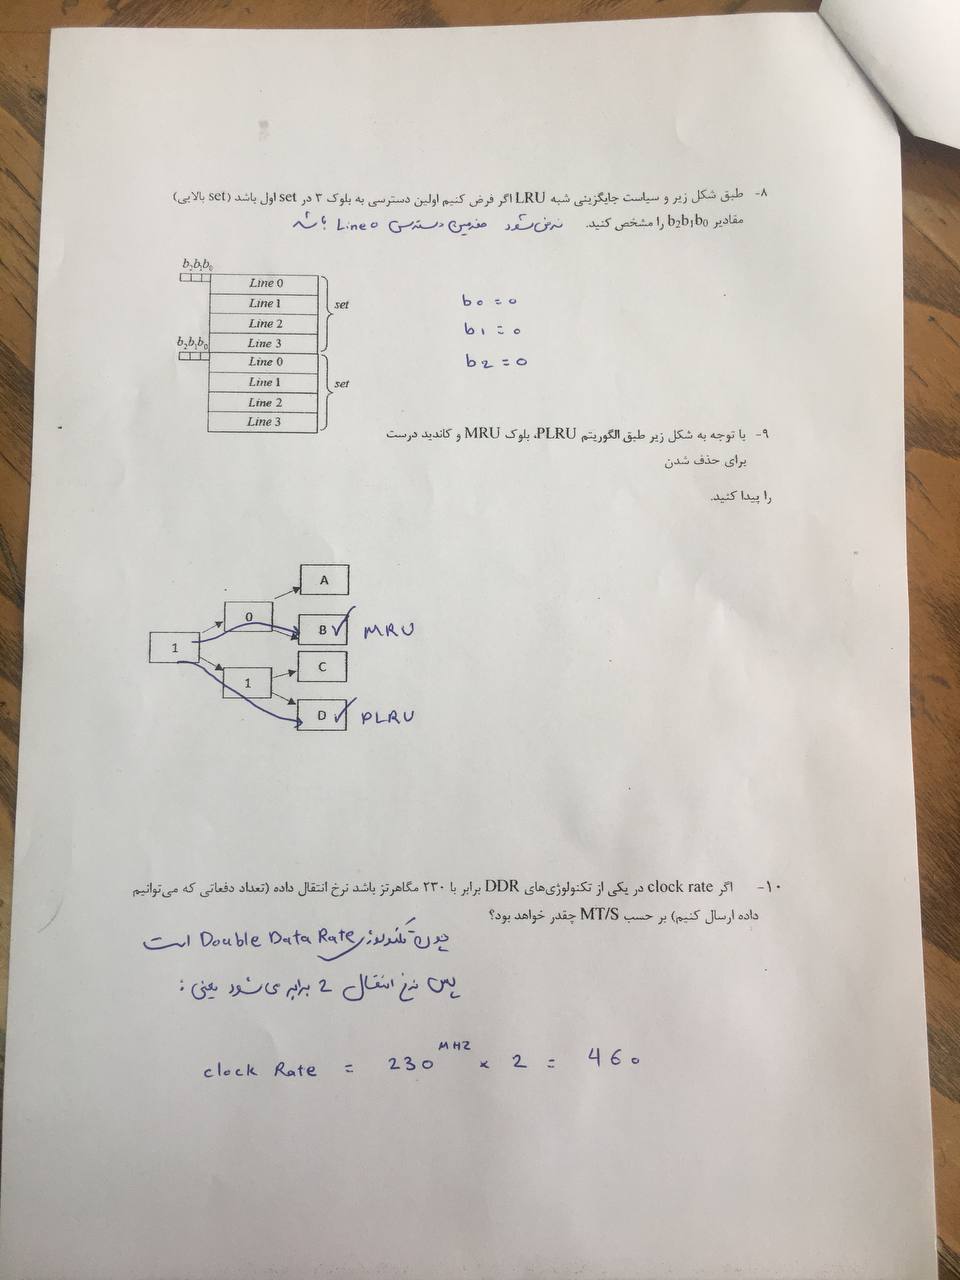 ۸- طبق شکل زیر و سیاست جایگزینی شبه LRU اگر فرض کنیم اولین دسترسی به بلوک ۳ در set اول باشد (set بالایی)
مقادیر b₂b₁b₀ را مشخص کنید. فرض شود دسترسی Line 0 باشد
b₂b₁b₀
Line 0
Line 1
Line 2
Line 3
set
b₂b₁b₀
Line 0
Line 1
Line 2
Line 3
set
b0 = 0
b1 = 0
b2 = 0
۹- با توجه به شکل زیر طبق الگوریتم PLRU، بلوک MRU و کاندید درست
برای حذف شدن
را پیدا کنید.
A
0
B ✓ MRU
1
C
1
D ✓ PLRU
۱۰- اگر clock rate در یکی از تکنولوژی‌های DDR برابر با ۲۳۰ مگاهرتز باشد نرخ انتقال داده (تعداد دفعاتی که می‌توانیم
داده ارسال کنیم) بر حسب MT/S چقدر خواهد بود؟
چون تکنولوژی Double Data Rate است
پس نرخ انتقال 2 برابر می‌شود یعنی :
clock Rate = 230 MHZ × 2 = 460